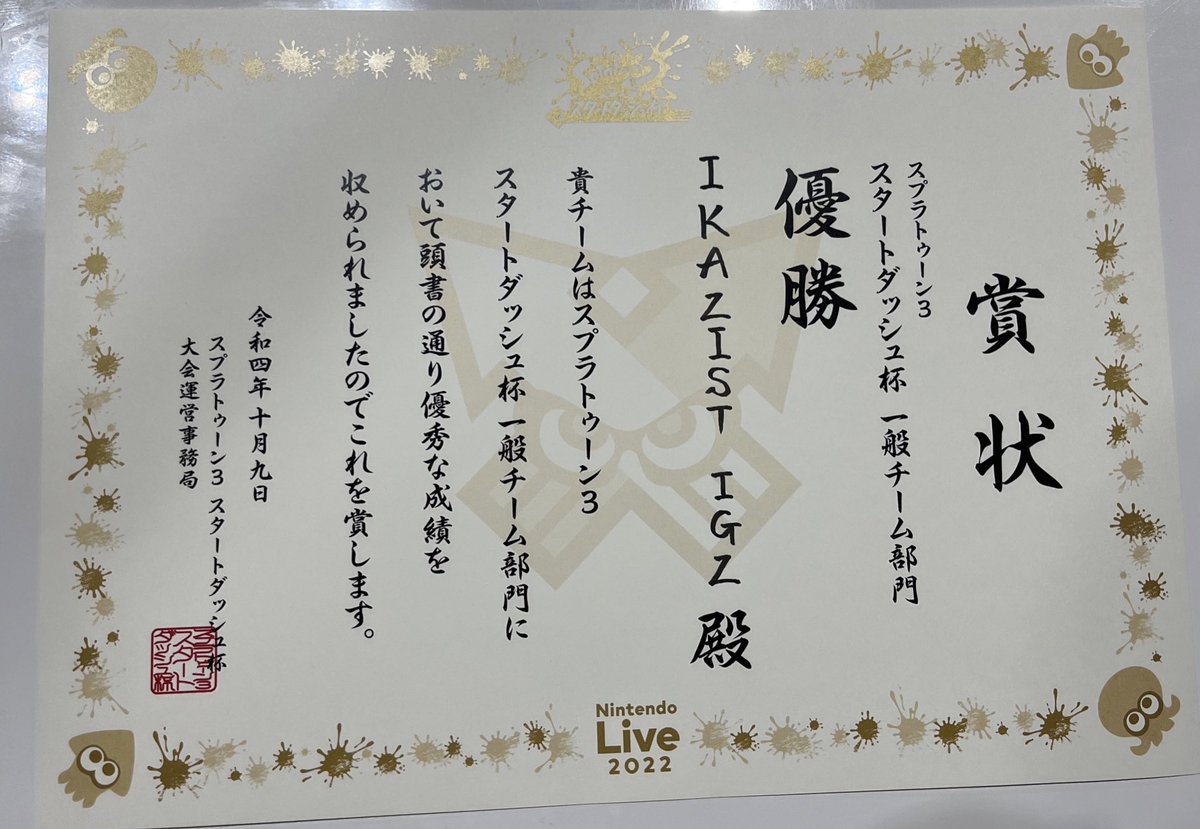 賞状
スプラトゥーン3
スタートダッシュ杯 一般チーム部門
優勝
IKAZIST IGZ 殿
貴チームはスプラトゥーン3
スタートダッシュ杯 一般チーム部門に
おいて頭書の通り優秀な成績を
収められましたのでこれを賞します。
令和四年十月九日
スプラトゥーン3 スタートダッシュ杯
大会運営事務局
Nintendo
Live
2022